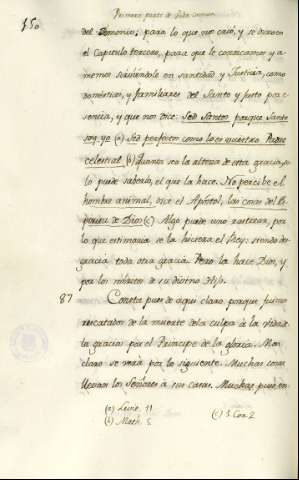 150
Primera parte de
del Demonio, para lo que no crió, y se dirá en
el Capitulo tercero, para que le conozcamos y a-
memos sirviendole en santidad y Justicia, como
domésticos, y familiares del Santo y Justo por e-
sencia, y que nos dice. Sed Santos porque Santo
soy yo (a) Sed perfectos como lo es vuestro Padre
celestial (b) Quanta sea la alteza de esta gracia, so-
lo puede saberlo, el que la hace. No percibe el
hombre animal, dice el Apóstol, las cosas del Es-
piritu de Dios (c) Algo puede uno rastrear, por
lo que estimaria se la hiciera el Rey, siendo des-
gracia toda otra gracia. Pero la hace Dios, y
por los méritos de su divino Hijo.
87 Consta pues de aqui claro, porque fuimos
rescatados de la muerte de la culpa á la vida de
la gracia por el Principe de la gloria. Mas
claro se verá por lo siguiente. Muchas cosas
llevan los Señores á sus casas. Muchas
(a) Levit. 11
(b) Math. 5
(c) 1 Cor. 2